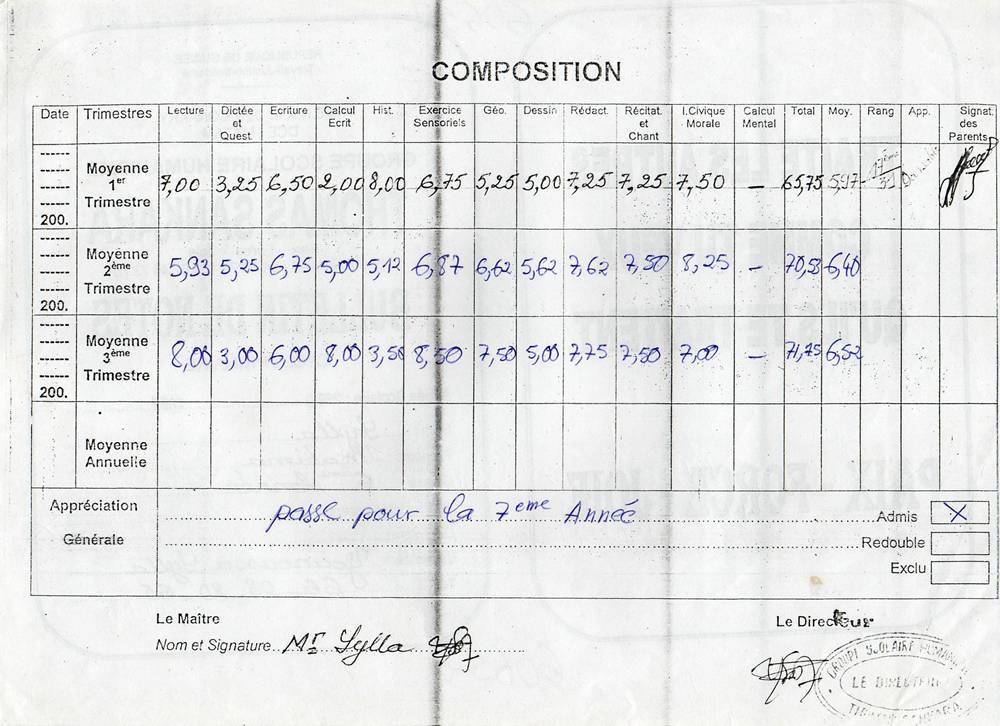 COMPOSITION
Date Trimestres Lecture Dictée et Quest. Ecriture Calcul Ecrit Hist. Exercice Sensoriels Géo. Dessin Rédact. Récitat. et Chant I.Civique Morale Calcul Mental Total Moy. Rang App. Signat. des Parents
200. Moyenne 1er Trimestre 7,00 3,25 6,50 2,00 8,00 6,75 5,25 5,00 7,25 7,25 7,50 — 65,75 5,97 17ème 31
200. Moyenne 2ème Trimestre 5,93 5,25 6,75 5,00 5,12 6,87 6,62 5,62 7,62 7,50 8,25 — 70,53 6,40
200. Moyenne 3ème Trimestre 8,00 3,00 6,00 8,00 3,50 8,50 7,50 5,00 7,75 7,50 7,00 — 71,75 6,52
Moyenne Annuelle
Appréciation Générale
passe pour la 7eme Année
Admis X
Redouble
Exclu
Le Maître
Le Directeur
Nom et Signature Mr Sylla
GROUPE SCOLAIRE
LE DIRECTEUR